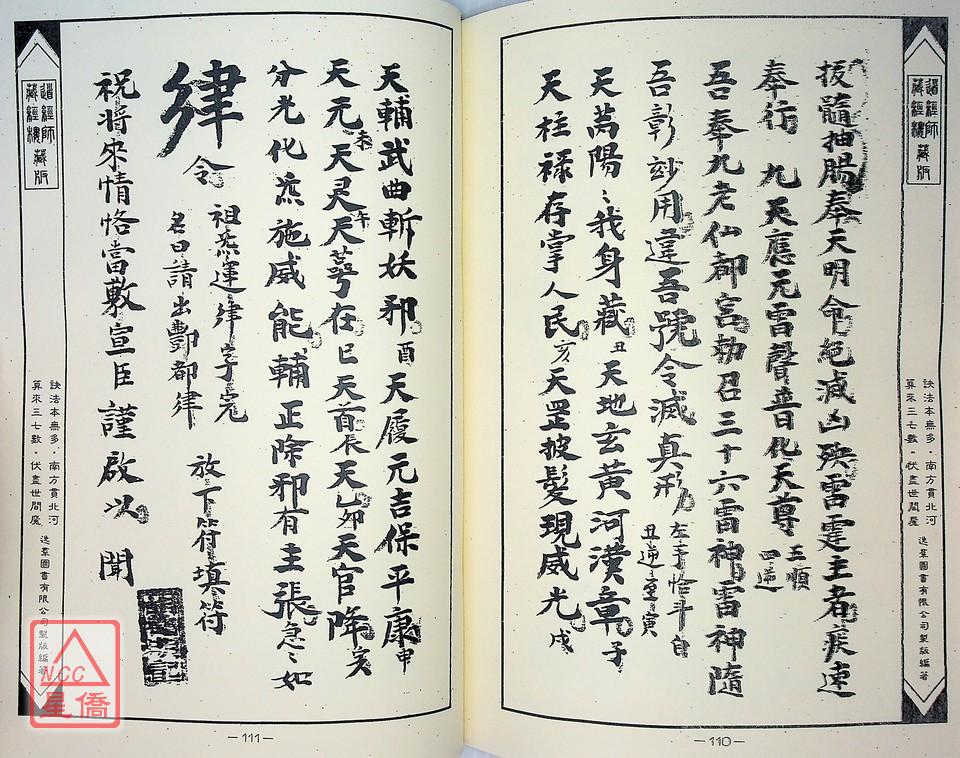 道經師
藏經樓 藏版
訣法本無多・南方貫北河
算來三七數・伏盡世間魔
逸羣圖書有限公司製版編著
拔髓抽腸奉天明命絕滅凶殃雷霆主者疾速
奉行 九天應元雷聲普化天尊 三順
四逆
吾奉九老仙都言勅召三十六雷神雷神隨
吾彰玅用違吾號令滅真形 左手恰斗自
丑逆至寅
天萬陽ミ我身藏丑天地玄黃河漢章子
天柱祿存掌人民亥天罡披髮現威光戌
—110—
天輔武曲斬妖邪酉天履元吉保平康申
天元未天灵午天蕚在巳天首辰天乙卯天官降亥
分光化炁施威能輔正除邪有主張急ミ如
律令 祖炁運律字完
名曰請出酆都律
放下符填符
祝將來情恪當敷宣臣謹啟以聞
—111—
道經師
藏經樓 藏版
訣法本無多・南方貫北河
算來三七數・伏盡世間魔
逸羣圖書有限公司製版編著
NCC
星僑